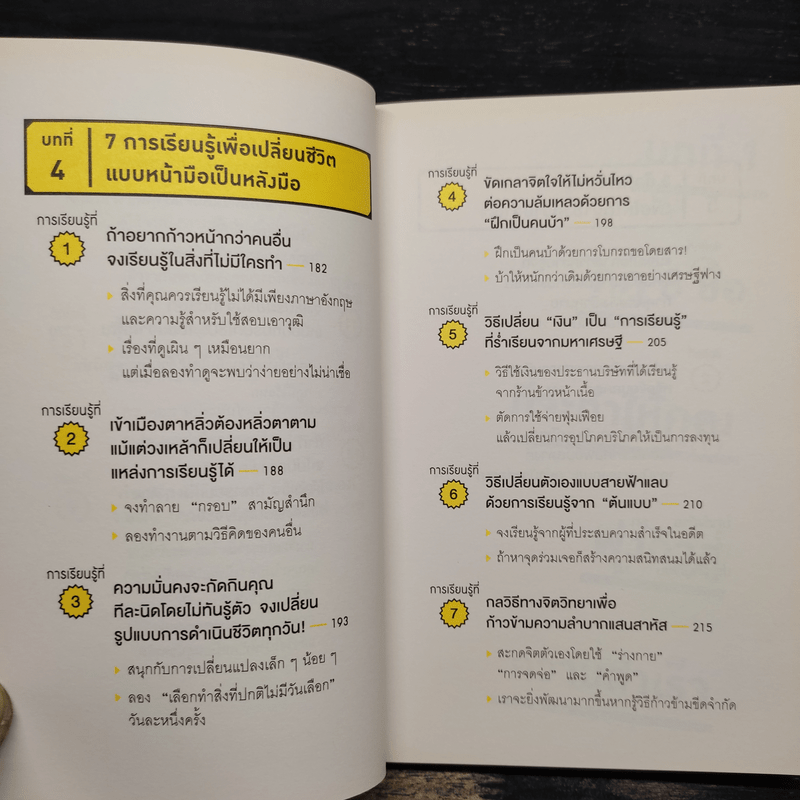 บทที่
4
7 การเรียนรู้เพื่อเปลี่ยนชีวิต
แบบหน้ามือเป็นหลังมือ
การเรียนรู้ที่
1
ถ้าอยากก้าวหน้ากว่าคนอื่น
จงเรียนรู้ในสิ่งที่ไม่มีใครทำ — 182
สิ่งที่คุณควรเรียนรู้ไม่ได้มีเพียงภาษาอังกฤษ
และความรู้สำหรับใช้สอบเอาวุฒิ
เรื่องที่ดูเผิน ๆ เหมือนยาก
แต่เมื่อลองทำดูจะพบว่าง่ายอย่างไม่น่าเชื่อ
การเรียนรู้ที่
2
เข้าเมืองตาหลิ่วต้องหลิ่วตาตาม
แม้แต่วงเหล้าก็เปลี่ยนให้เป็น
แหล่งการเรียนรู้ได้ — 188
จงทำลาย “กรอบ” สามัญสำนึก
ลองทำงานตามวิธีคิดของคนอื่น
การเรียนรู้ที่
3
ความมั่นคงจะกัดกินคุณ
ทีละนิดโดยไม่ทันรู้ตัว จงเปลี่ยน
รูปแบบการดำเนินชีวิตทุกวัน! — 193
สนุกกับการเปลี่ยนแปลงเล็ก ๆ น้อย ๆ
ลอง “เลือกทำสิ่งที่ปกติไม่มีวันเลือก”
วันละหนึ่งครั้ง
การเรียนรู้ที่
4
ขัดเกลาจิตใจให้ไม่หวั่นไหว
ต่อความล้มเหลวด้วยการ
“ฝึกเป็นคนบ้า” — 198
ฝึกเป็นคนบ้าด้วยการโบกรถขอโดยสาร!
บ้าให้หนักกว่าเดิมด้วยการเอาอย่างเศรษฐีฟาง
การเรียนรู้ที่
5
วิธีเปลี่ยน “เงิน” เป็น “การเรียนรู้”
ที่ร่ำเรียนจากมหาเศรษฐี — 205
วิธีใช้เงินของประธานบริษัทที่ได้เรียนรู้
จากร้านข้าวหน้าเนื้อ
ตัดการใช้จ่ายฟุ่มเฟือย
แล้วเปลี่ยนการอุปโภคบริโภคให้เป็นการลงทุน
การเรียนรู้ที่
6
วิธีเปลี่ยนตัวเองแบบสายฟ้าแลบ
ด้วยการเรียนรู้จาก “ต้นแบบ” — 210
จงเรียนรู้จากผู้ที่ประสบความสำเร็จในอดีต
ถ้าหาจุดร่วมเจอก็สร้างความสนิทสนมได้แล้ว
การเรียนรู้ที่
7
กลวิธีทางจิตวิทยาเพื่อ
ก้าวข้ามความลำบากแสนสาหัส — 215
สะกดจิตตัวเองโดยใช้ “ร่างกาย”
“การจดจ่อ” และ “คำพูด”
เราจะยิ่งพัฒนามากขึ้นหากรู้วิธีก้าวข้ามขีดจำกัด